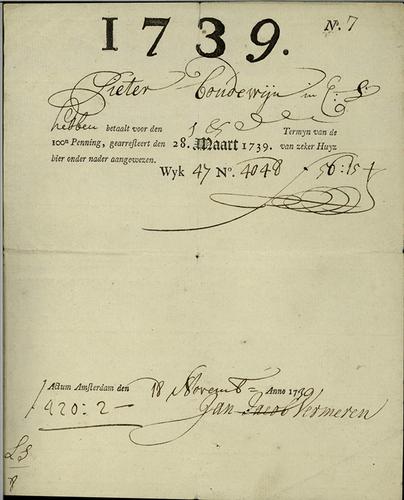 1739.
N. 7
Pieter Boudewijn in C: S:
hebben betaalt voor den 1 Termyn van de
100e Penning, gearresteert den 28. Maart 1739. van zeker Huyz
hier onder nader aangewezen.
Wyk 47 No. 4048 f 56:15
Actum Amsterdam den 18 Novemb = Anno 1739
420:2— Jan Jacob Vermeren
LS
8